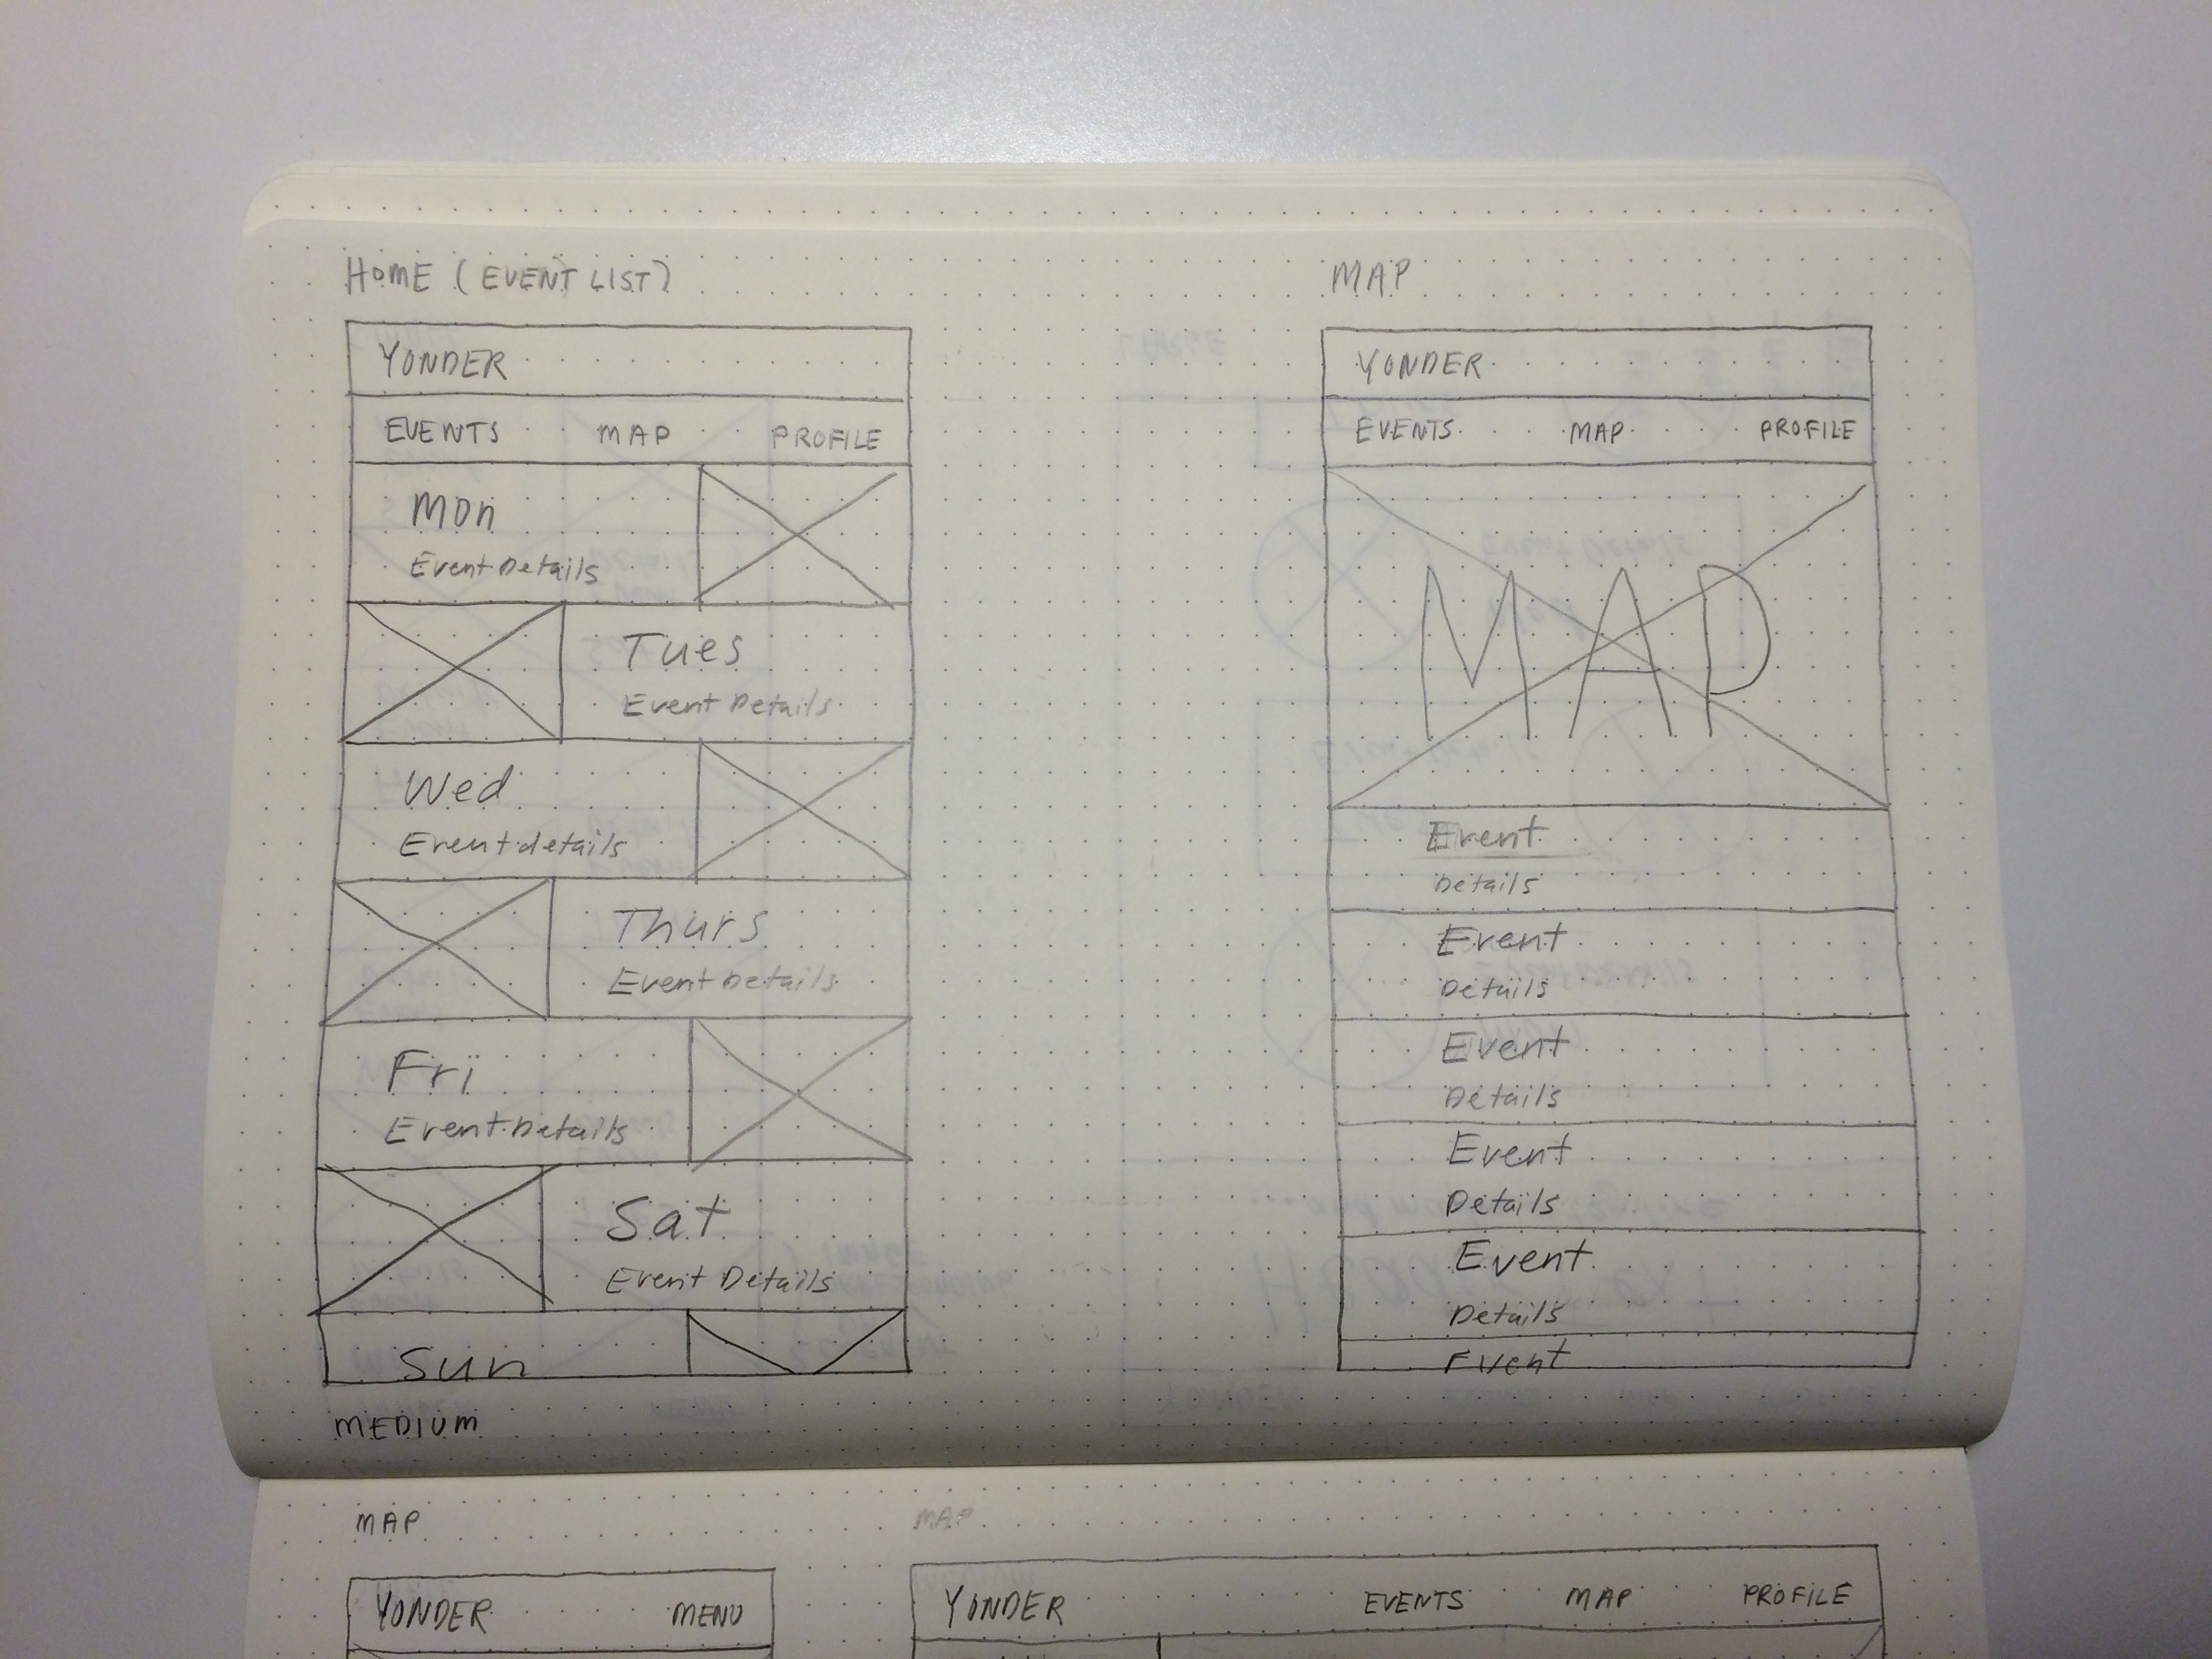 HOME (EVENT LIST)
YONDER
EVENTS MAP PROFILE
Mon
Event Details
Tues
Event Details
Wed
Event details
Thurs
Event Details
Fri
Event Details
Sat
Event Details
Sun
MEDIUM
MAP
YONDER
EVENTS MAP PROFILE
MAP
Event
Details
Event
Details
Event
Details
Event
Details
Event
Details
Event
MAP
YONDER MENU
MAP
YONDER EVENTS MAP PROFILE